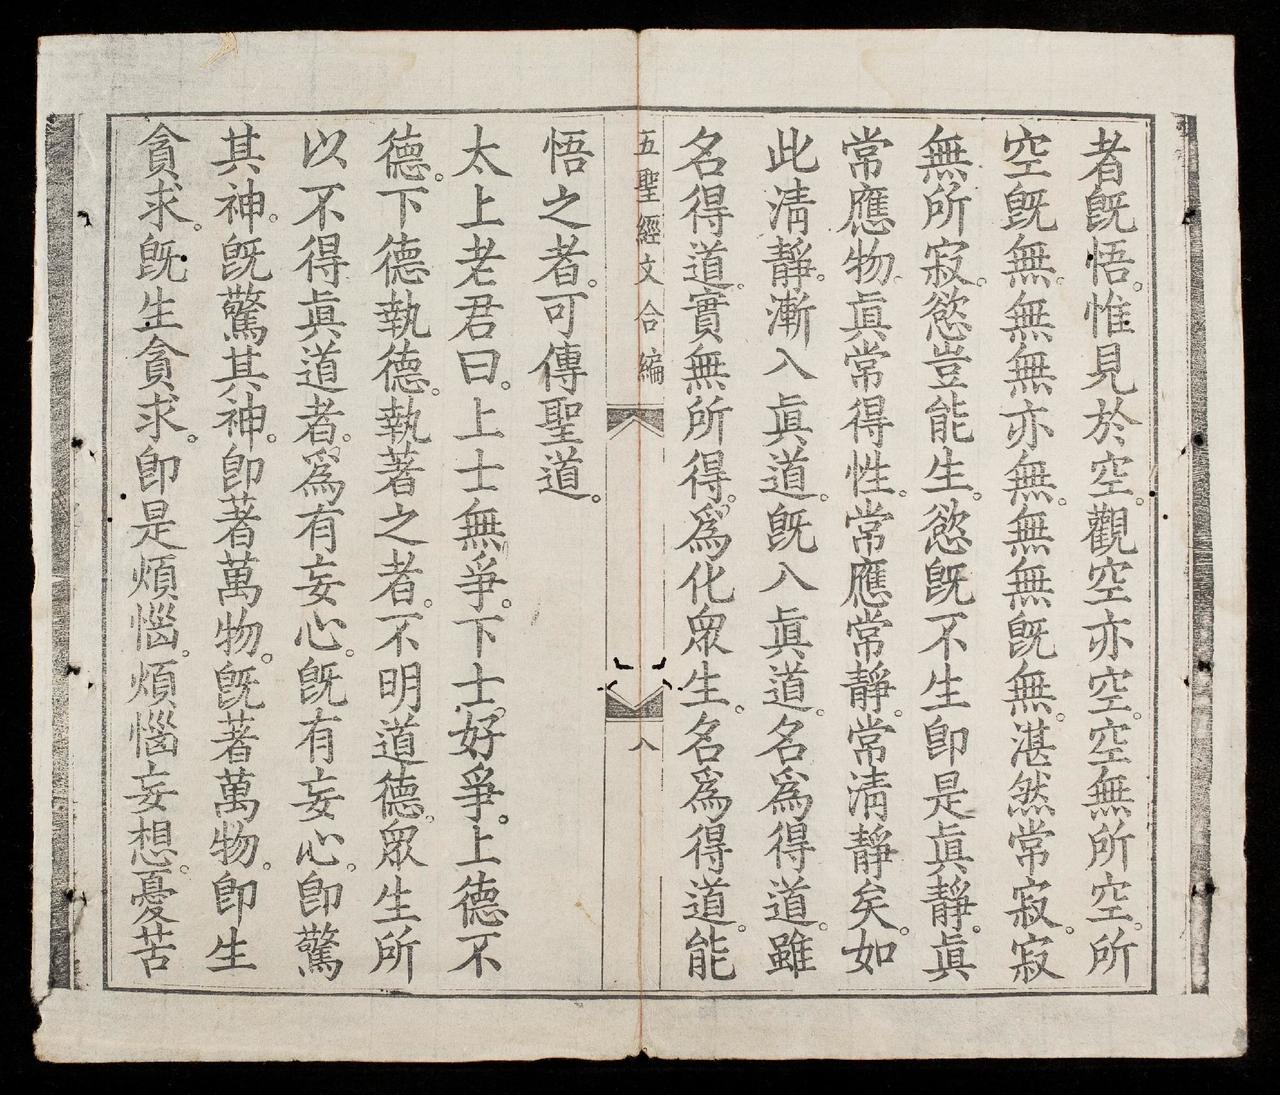 者旣悟。惟見於空。觀空亦空。空無所空。所
空旣無。無無亦無。無無旣無。湛然常寂。寂
無所寂。慾豈能生。慾旣不生。卽是眞靜。眞
常應物。眞常得性。常應常靜。常清靜矣。如
此清靜。漸入眞道。旣入眞道。名爲得道。雖
名得道。實無所得。爲化衆生。名爲得道。能
五聖經文合編
八
悟之者。可傳聖道。
太上老君曰。上士無爭。下士好爭。上德不
德。下德執德。執著之者。不明道德。衆生所
以不得眞道者。爲有妄心。旣有妄心。卽驚
其神。旣驚其神。卽著萬物。旣著萬物。卽生
貪求。旣生貪求。卽是煩惱。煩惱妄想。憂苦